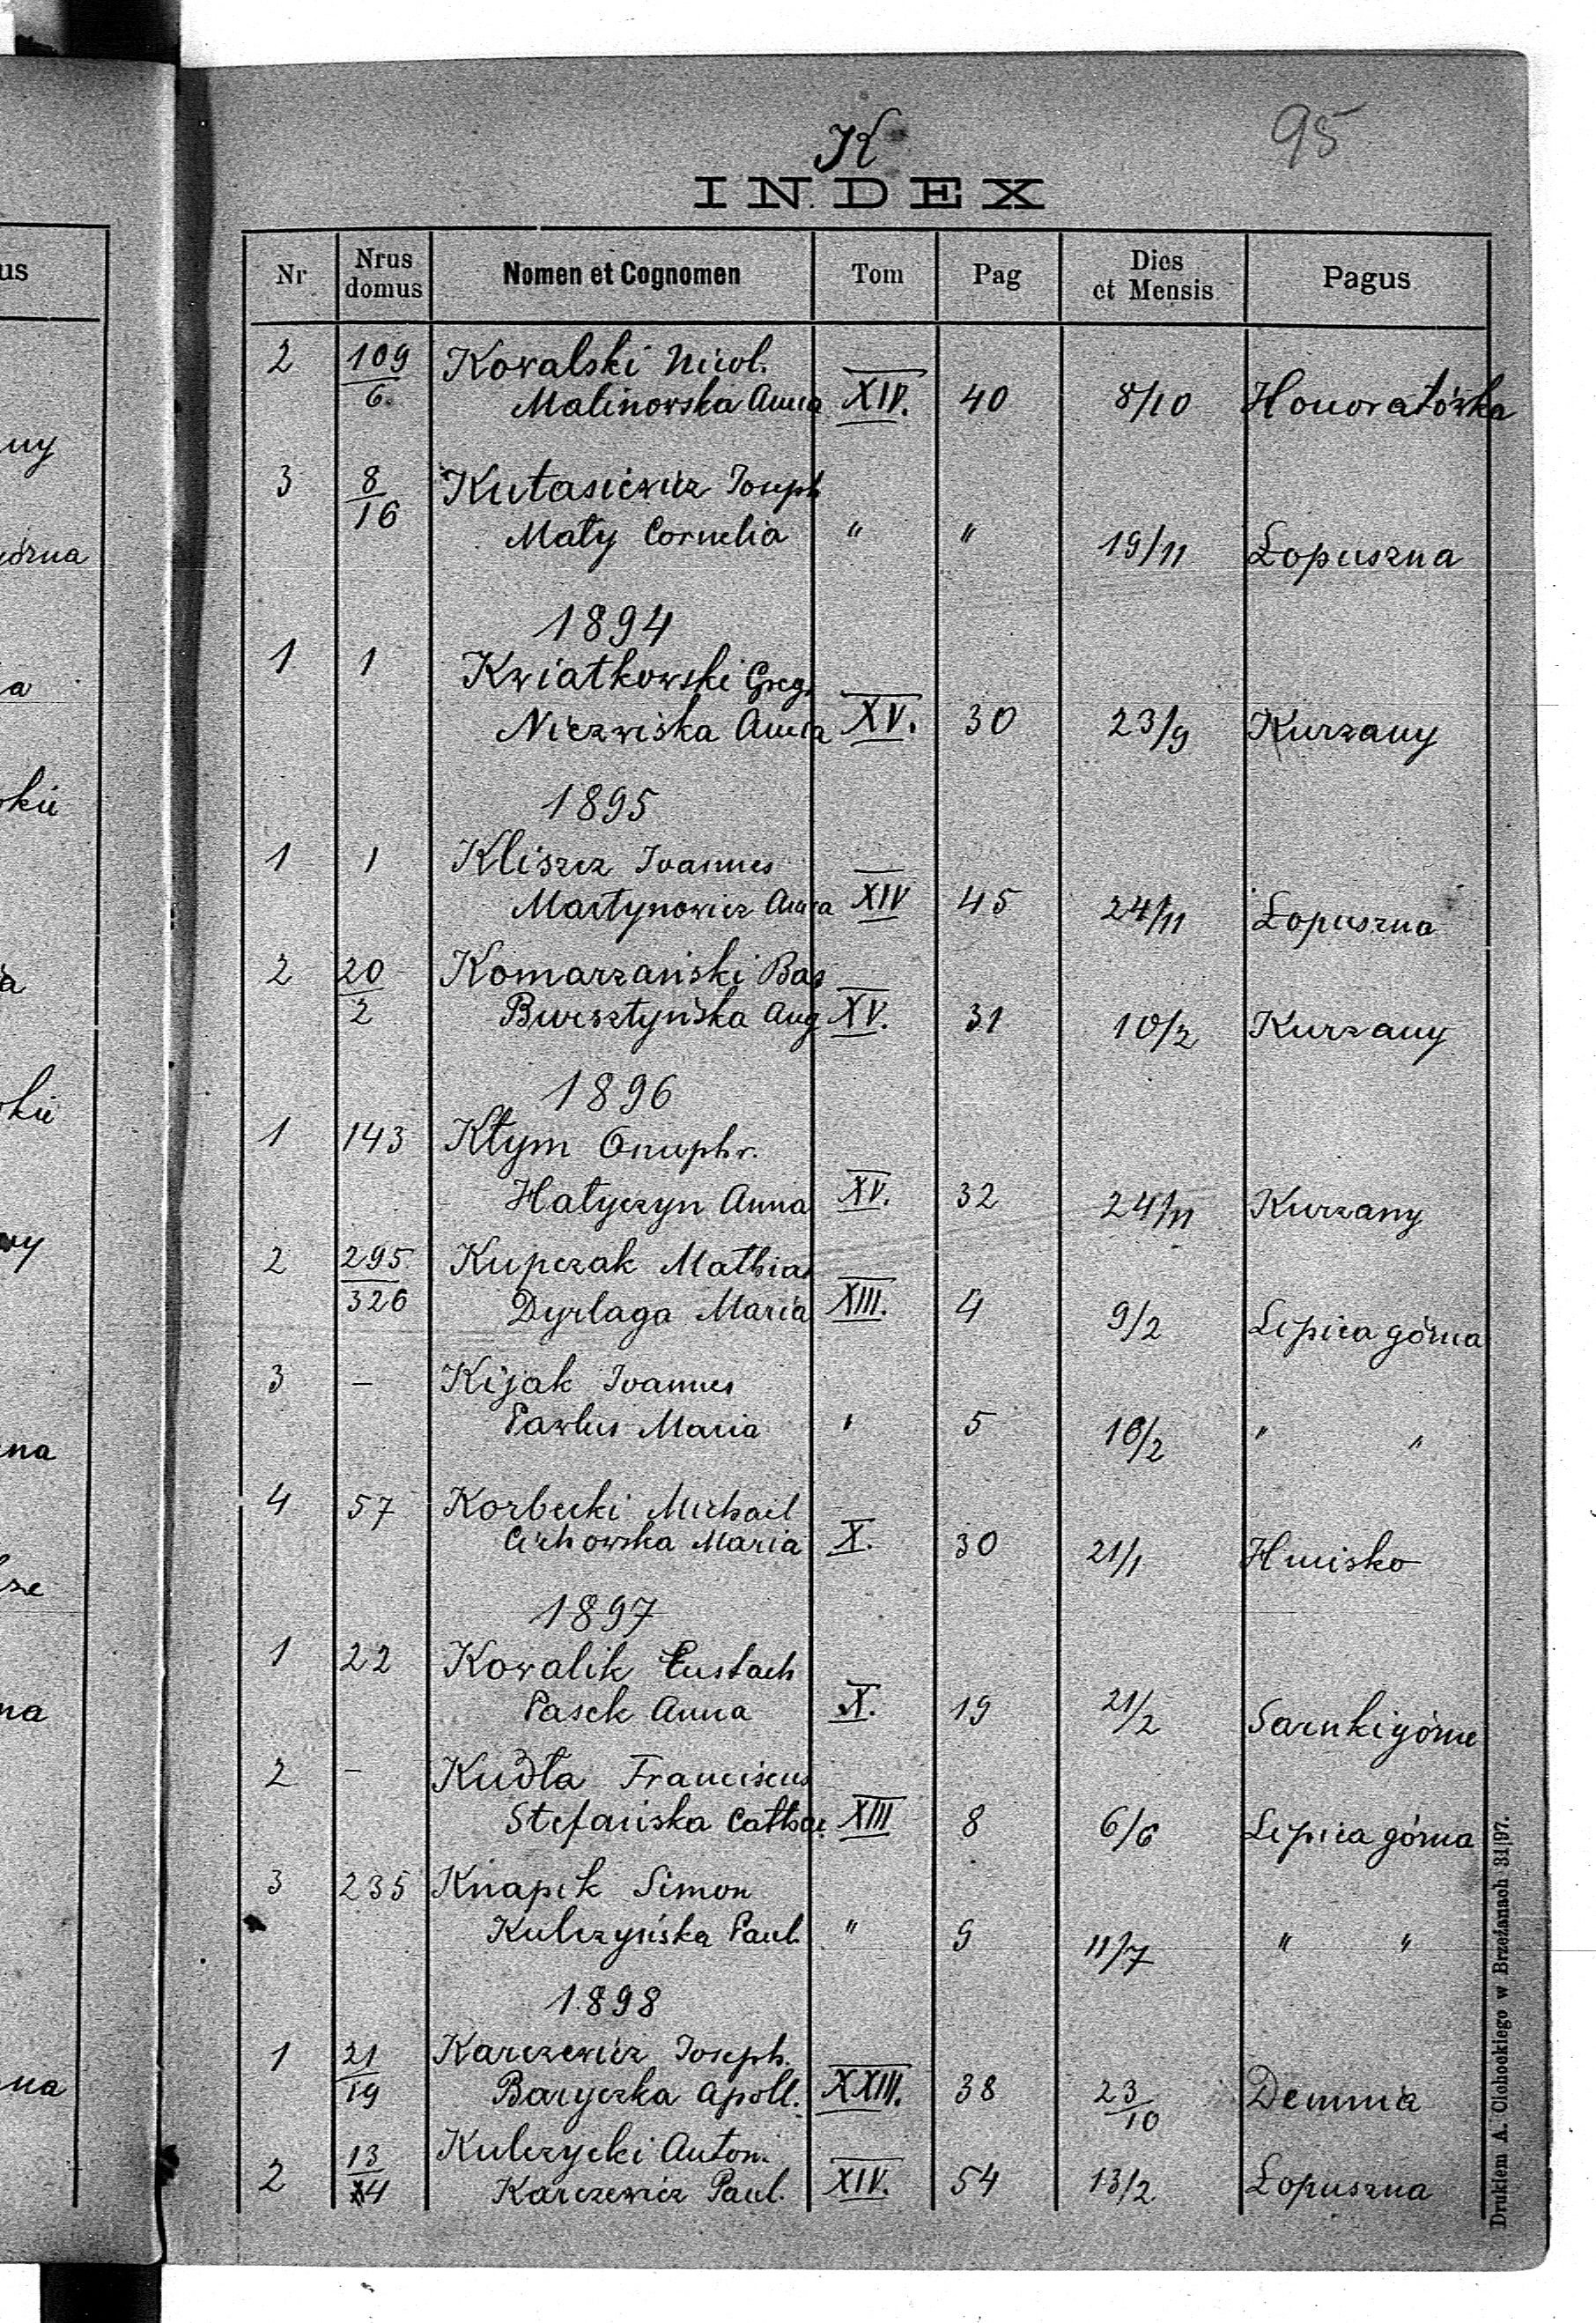 K
95
INDEX
Nr Nrus domus Nomen et Cognomen Tom Pag Dies et Mensis Pagus
2 109/6 Kowalski Nicol.
Malinowska Anna XIV. 40 8/10 Honoratówka
3 8/16 Kutasiewicz Joseph
Mały Cornelia " " 19/11 Łopuszna
1894
1 1 Kwiatkowski Greg.
Niezwiska Anna XV. 30 23/9 Kurzany
1895
1 1 Kliszcz Joannes
Martynowicz Anna XIV 45 24/11 Łopuszna
2 20/2 Komarzański Bas
Bursztyńska Aug XV. 31 10/2 Kurzany
1896
1 143 Kłym Onuphr.
Hałyczyn Anna XV. 32 24/11 Kurzany
2 295/326 Kupczak Mathias
Dyrlaga Maria XIII. 4 9/2 Lipica górna
3 – Kijak Joannes
Pawlus Maria " 5 16/2 " "
4 57 Korbecki Michael
Cichowska Maria X. 30 21/1 Hnisko
1897
1 22 Kowalik Eustach
Pasek Anna X. 19 21/2 Sarnki górne
2 – Kudła Franciscus
Stefańska Cathar. XIII 8 6/6 Lipica górna
3 235 Knapik Simon
Kulczyńska Paul. " 9 11/7 " "
1898
1 21/19 Karczewicz Joseph.
Baryczka Apoll. XXIII. 38 23/10 Demnia
2 13/14 Kulczycki Anton.
Karczewicz Paul. XIV. 54 13/2 Łopuszna
Drukiem A. Cichockiego w Brzeżanach 31|97.